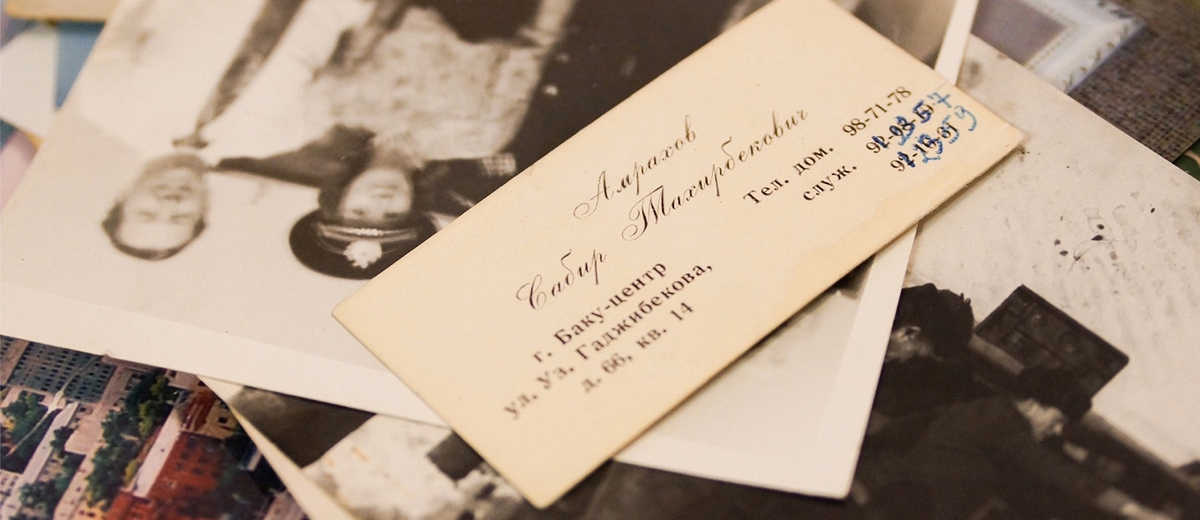 Амрахов
Сабир Тахирбекович
Тел. дом. 98-71-78
служ.
г. Баку-центр
ул. Уз. Гаджибекова,
д. 66, кв. 14